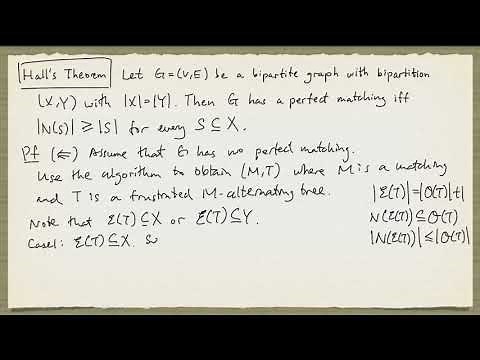 Hall's Theorem Let G=(V,E) be a bipartite graph with bipartition
(X,Y) with |X|=|Y|. Then G has a perfect matching iff
|N(S)| ⩾ |S| for every S⊆X.
Pf (⇐) Assume that G has no perfect matching.
Use the algorithm to obtain (M,T) where M is a matching
and T is a frustrated M-alternating tree.
Note that E(T)⊆X or E(T)⊆Y.
Case1: E(T)⊆X. So
|E(T)|=|O(T)|+1
N(E(T))⊆O(T)
|N(E(T))|≤|O(T)|